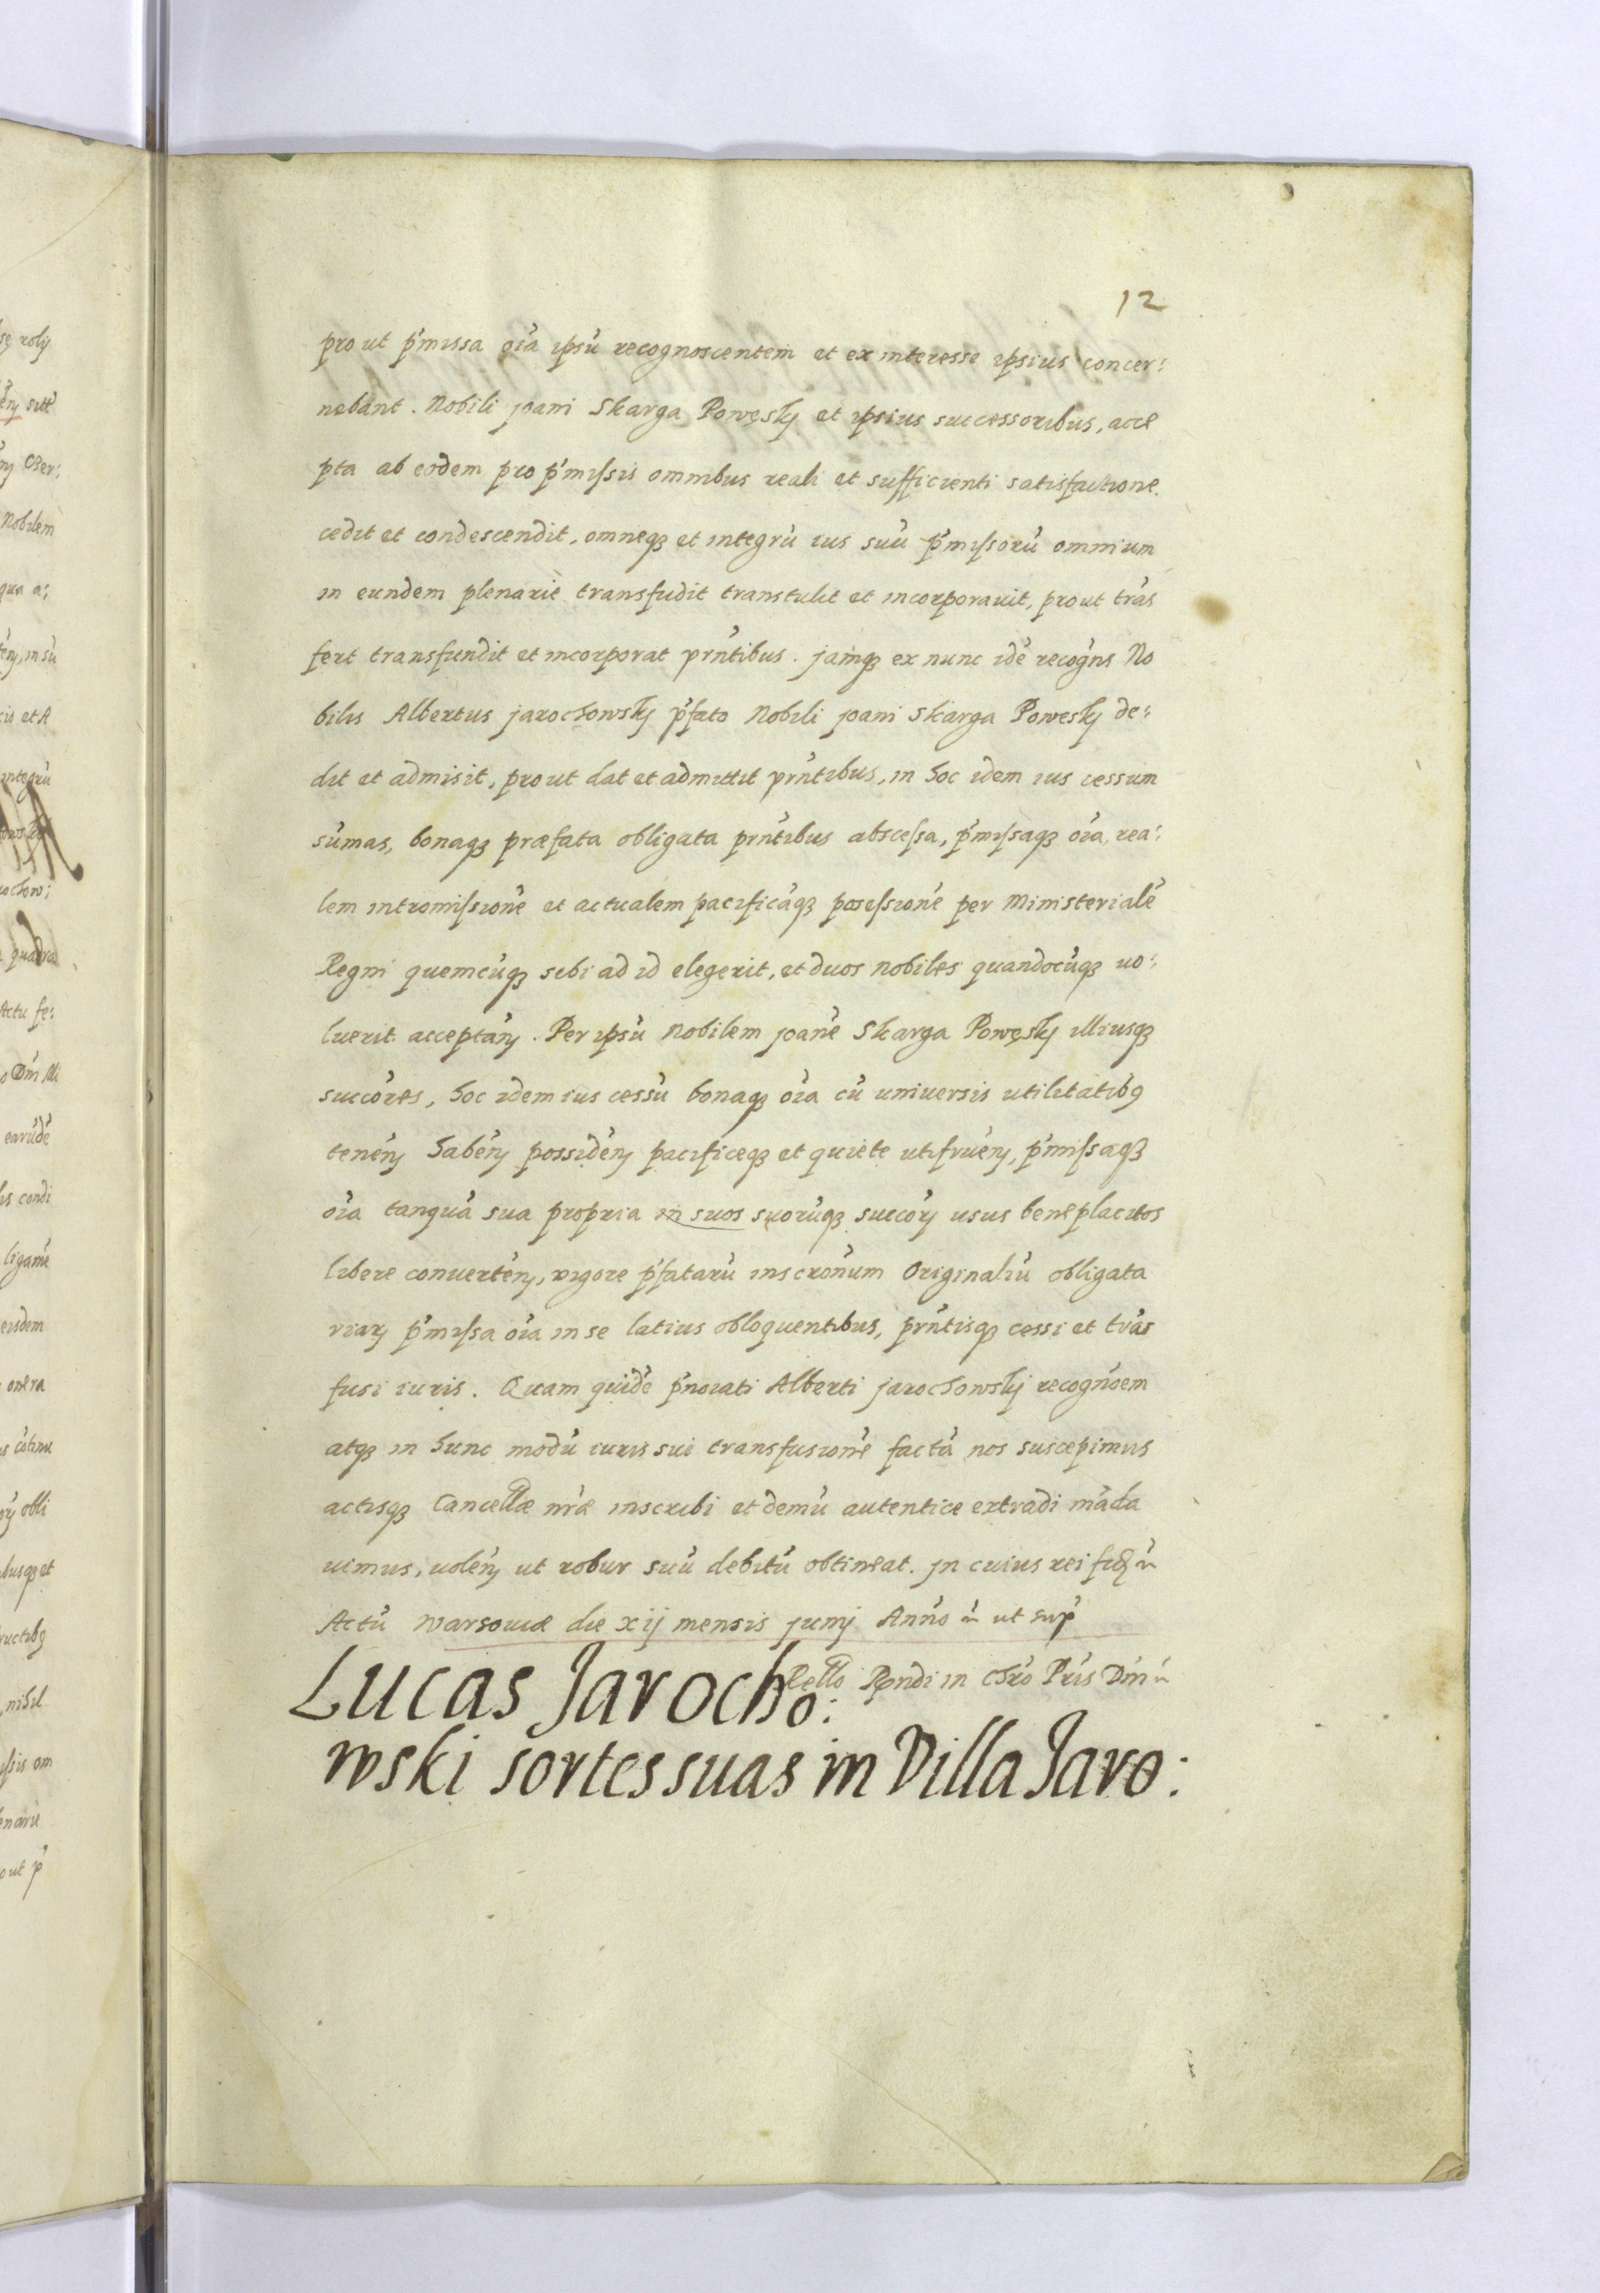 12
prout p̃missa oĩa ipsũ recognoscentem et ex interesse ipsius concer:
nebant. Nobili joani Skarga Powęsky et ipsius successoribus, acce
pta ab eodem pro p̃missis omnibus reali et sufficienti satisfactione
cedit et condescendit, omneqꝫ et integrũ ius suũ p̃missorũ omnium
in eundem plenarie transfudit transtulit et incorporauit, prout trãs
fert transfundit et incorporat prñtibus. jamqꝫ ex nunc idẽ recogñs No
bilis Albertus jarochowsky p̃fato Nobili joani Skarga Powesky de:
dit et admisit, prout dat et admittit prñtibus, in hoc idem ius cessum
sũmas, bonaqꝫ præfata obligata prñtibus abscessa, p̃missaqꝫ oĩa, rea:
lem intromissionẽ et actualem pacificãqꝫ posessionẽ per Ministerialẽ
Regni quemcũqꝫ sibi ad id elegerit, et duos nobiles quandocũqꝫ uo:
luerit acceptañ. Per ipsũ Nobilem joanẽ Skarga Powęsky illiusqꝫ
succões, hoc idem ius cessũ bonaqꝫ oĩa cũ uniuersis utilitatibꝯ
teneñ habeñ possideñ pacificeqꝫ et quiete utifrueñ, p̃missaqꝫ
oĩa tanquã sua propria in suos suorũqꝫ succoꝝ usus beneplacitos
libere conuerteñ, vigore p̃fatarũ inscrõnum Originaliũ obligata
riaꝝ p̃missa oĩa in se latius obloquentibus, prñtisqꝫ cessi et trãs
fusi iuris. Quam quidẽ p̃noiati Alberti jarochowsky recogñoem
atqꝫ in hunc modũ iuris sui transfusionẽ factã nos suscepimus
actisqꝫ Cancellæ nr̃æ inscribi et demũ autentice extradi mãda
uimus, uoleñ ut robur suũ debitũ obtineat. jn cuius rei fidẽ
Actũ Warsouiæ die xij mensis junij Anno ut sup̃
Rello Rǫndi in Chr̃o Pr̃is Dñi
Lucas Jarocho:
wski sortes suas in Villa Jaro: